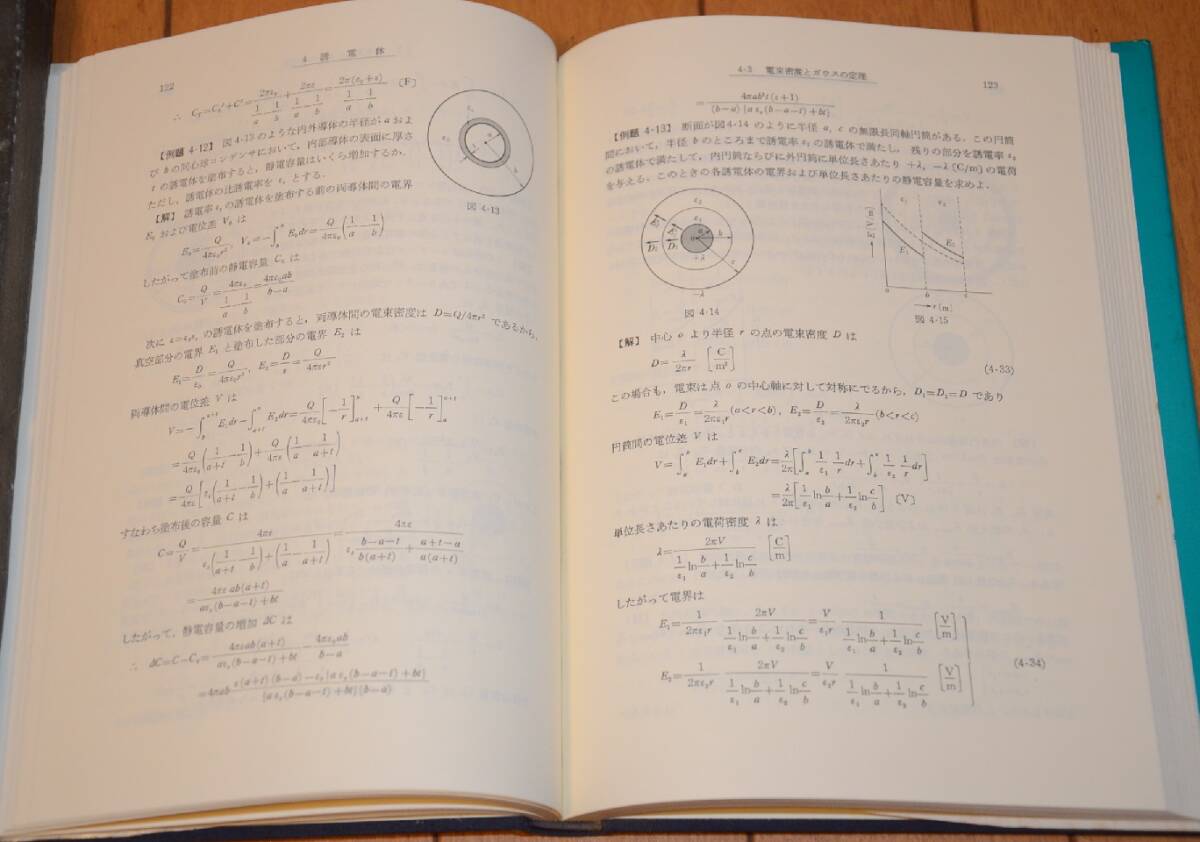 122
4 誘電体
∴ C_T=C_0'+C'=2πε_0/(1/a-1/b)+2πε/(1/a-1/b)=2π(ε_0+ε)/(1/a-1/b) 〔F〕
【例題 4-12】 図4-13のような内外導体の半径が a およ
び b の同心球コンデンサにおいて，内部導体の表面に厚さ
t の誘電体を塗布すると，静電容量はいくら増加するか．
ただし，誘電体の比誘電率を ε_s とする．
図 4-13
【解】 誘電率 ε_s の誘電体を塗布する前の両導体間の電界
E_0 および電位差 V_0 は
E_0=Q/4πε_0r², V_0=-∫_b^a E_0dr=Q/4πε_0(1/a-1/b)
したがって塗布前の静電容量 C_0 は
C_0=Q/V=4πε_0/(1/a-1/b)=4πε_0ab/(b-a)
次に ε=ε_sε_0 の誘電体を塗布すると，両導体間の電束密度は D=Q/4πr² であるから，
真空部分の電界 E_1 と塗布した部分の電界 E_2 は
E_1=D/ε_0=Q/4πε_0r², E_2=D/ε=Q/4πεr²
両導体間の電位差 V は
V=-∫_b^{a+t} E_1dr-∫_{a+t}^a E_2dr=Q/4πε_0[-1/r]_{a+t}^b+Q/4πε[-1/r]_a^{a+t}
=Q/4πε_0(1/(a+t)-1/b)+Q/4πε(1/a-1/(a+t))
=Q/4πε[ε_s(1/(a+t)-1/b)+(1/a-1/(a+t))]
すなわち塗布後の容量 C は
C=Q/V=4πε/(ε_s(1/(a+t)-1/b)+(1/a-1/(a+t)))=4πε/(ε_s(b-a-t)/(b(a+t))+(a+t-a)/(a(a+t)))
=4πεab(a+t)/(aε_s(b-a-t)+bt)
したがって，静電容量の増加 ΔC は
∴ ΔC=C-C_0=4πεab(a+t)/(aε_s(b-a-t)+bt)-4πε_0ab/(b-a)
=4πab ε(a+t)(b-a)-ε_0{aε_s(b-a-t)+bt}/({aε_s(b-a-t)+bt}(b-a))
4-3 電束密度とガウスの定理
123
【例題 4-13】 断面が図4-14 のように半径 a, c の無限長同軸円筒がある．この円筒
間において，半径 b のところまで誘電率 ε_1 の誘電体で満たし，残りの部分を誘電率 ε_2
の誘電体で満たして，内円筒ならびに外円筒に単位長さあたり +λ, -λ(C/m) の電荷
を与える．このときの各誘電体の電界および単位長さあたりの静電容量を求めよ．
図 4-14
図 4-15
【解】 中心 o より半径 r の点の電束密度 D は
D=λ/2πr [C/m²] (4-33)
この場合も，電束は点 o の中心軸に対して対称にでるから，D_1=D_2=D であり
E_1=D/ε_1=λ/2πε_1r(a<r<b), E_2=D/ε_2=λ/2πε_2r(b<r<c)
円筒間の電位差 V は
V=∫_a^b E_1dr+∫_b^c E_2dr=λ/2π[∫_a^b 1/ε_1 1/r dr+∫_b^c 1/ε_2 1/r dr]
=λ/2π[1/ε_1 ln b/a+1/ε_2 ln c/b] 〔V〕
単位長さあたりの電荷密度 λ は
λ=2πV/(1/ε_1 ln b/a+1/ε_2 ln c/b) [C/m]
したがって電界は
E_1=1/2πε_1r 2πV/(1/ε_1 ln b/a+1/ε_2 ln c/b)=V/ε_1r 1/(1/ε_1 ln b/a+1/ε_2 ln c/b) [V/m]
(4-34)
E_2=1/2πε_2r 2πV/(1/ε_1 ln b/a+1/ε_2 ln c/b)=V/ε_2r 1/(1/ε_1 ln b/a+1/ε_2 ln c/b) [V/m]